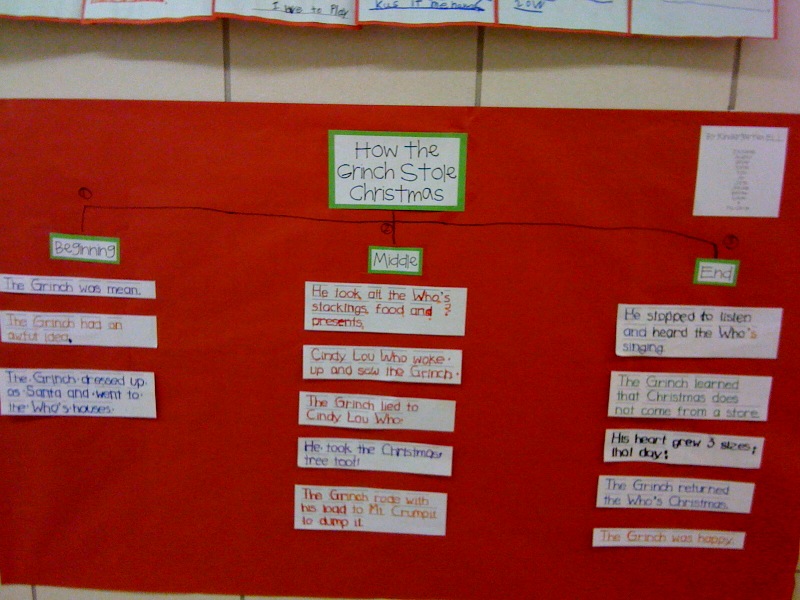 I like to Play
How the
Grinch Stole
Christmas
1
2
3
Beginning
The Grinch was mean.
The Grinch had an
awful idea.
The Grinch dressed up
as Santa and went to
the Who's houses.
Middle
He took all the Who's
stockings, food and
presents.
Cindy Lou Who woke
up and saw the Grinch.
The Grinch lied to
Cindy Lou Who.
He took the Christmas
tree too!!
The Grinch rode with
his load to Mt. Crumpit
to dump it.
End
He stopped to listen
and heard the Who's
singing.
The Grinch learned
that Christmas does
not come from a store.
His heart grew 3 sizes
that day!
The Grinch returned
the Who's Christmas.
The Grinch was happy.